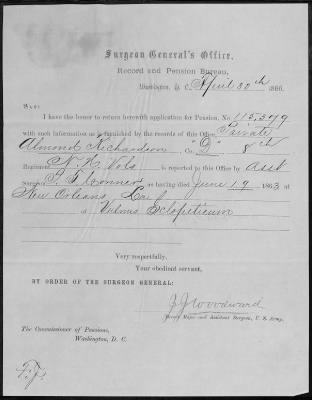 Surgeon General's Office,
Record and Pension Bureau,
Washington, D. C. April 30th 1866.
Sir:
I have the honor to return herewith application for Pension, No. 115,579
with such information as is furnished by the records of this Office. Private
Almond Richardson Co. "D" 8th
Regiment N. H. Vols is reported to this Office by Asst
Surgeon as having died June 19 1863 at
New Orleans La of
Vulnus Sclopeticum
Very respectfully,
Your obedient servant,
BY ORDER OF THE SURGEON GENERAL:
J. J. Woodward
Brevet Major and Assistant Surgeon, U. S. Army.
The Commissioner of Pensions,
Washington, D. C.